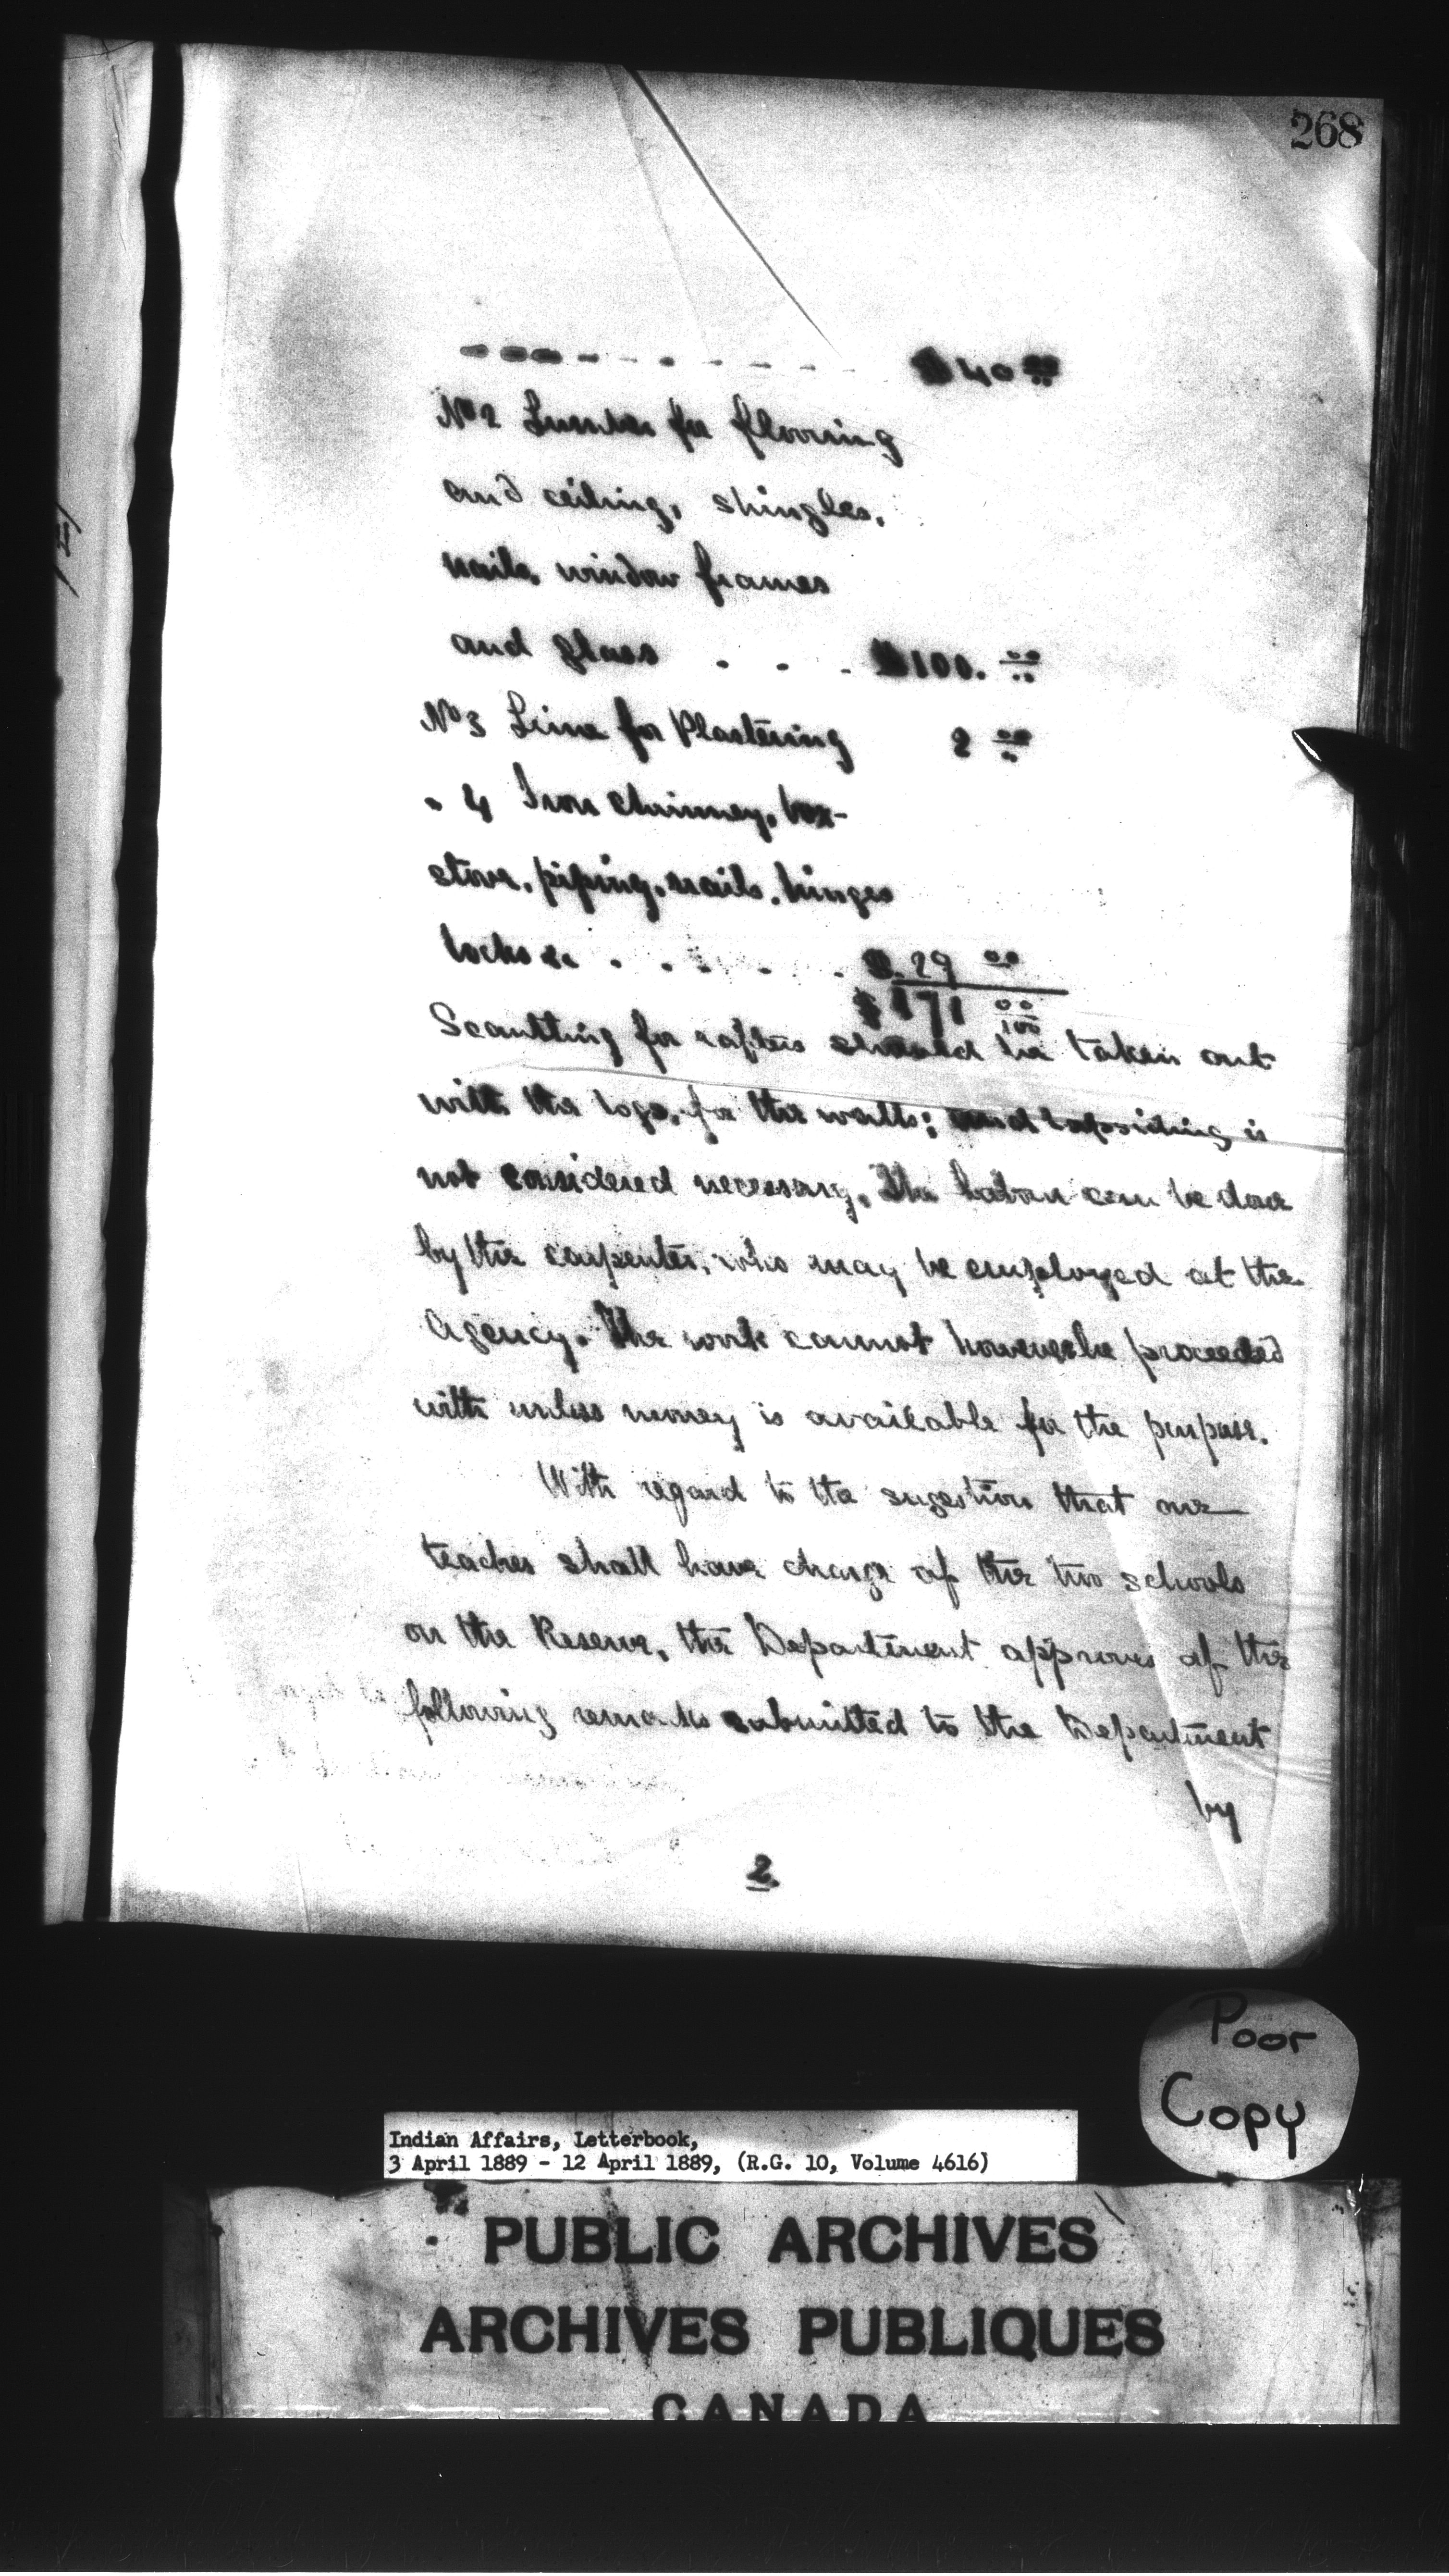 268
$40 00
No 2 Lumber for flooring
and ceiling, shingles,
nails, window frames
and glass . . . $100. 00
No 3 Lime for Plastering 2 00
" 4 Iron chimney, box-
stove, piping, nails, hinges
locks &c . . . . . $.29 00
$171 00/100
Scantling for rafters should be taken out
with the logs, for the walls; and lapsiding is
not considered necessary. The labour can be done
by the carpenter, who may be employed at the
Agency. The work cannot however be proceeded
with unless money is available for the purpose.
With regard to the sugestion that one
teacher shall have charge of the two schools
on the Reserve, the Department approves of the
following remarks submitted to the Department
by
2.
Poor
Copy
Indian Affairs, Letterbook,
3 April 1889 - 12 April 1889, (R.G. 10, Volume 4616)
PUBLIC ARCHIVES
ARCHIVES PUBLIQUES
CANADA